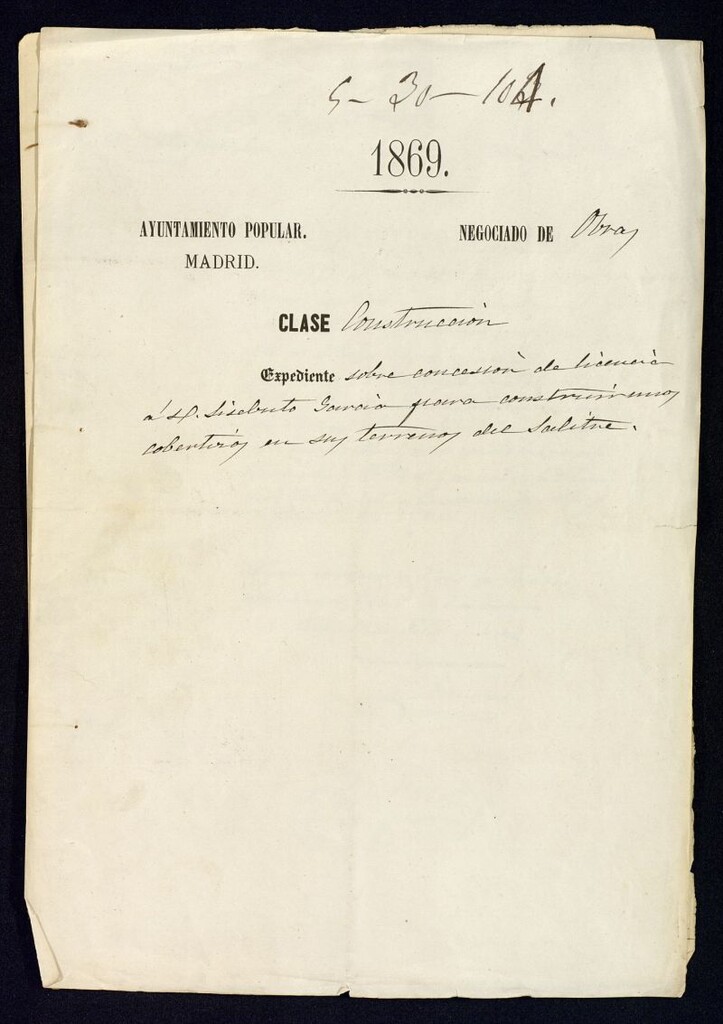 5-30-104.
1869.
AYUNTAMIENTO POPULAR.
MADRID.
NEGOCIADO DE Obras
CLASE Construccion
Expediente sobre concesion de licencia
á D. Sisebuto Garcia para construir unos
cobertizos en sus terrenos del Salitre.